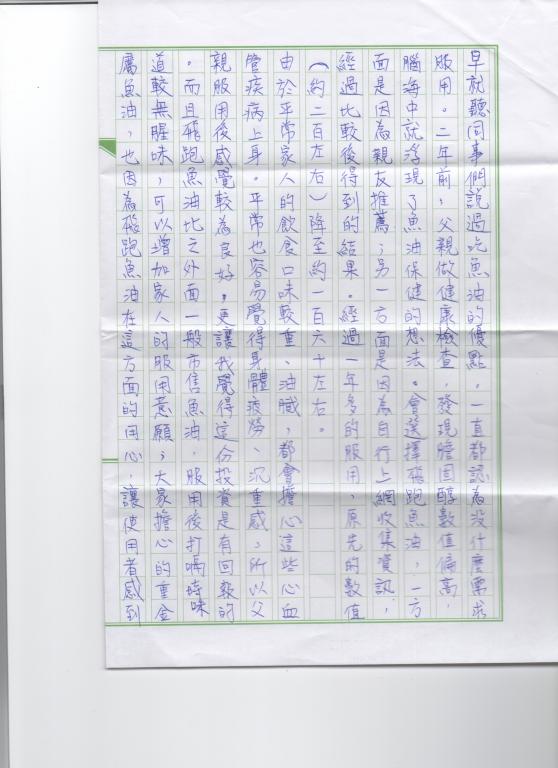 早就聽同事們說過吃魚油的優點，一直都認為沒什麼需求
服用。二年前，父親做健康檢查，發現膽固醇數值偏高，
腦海中就浮現了魚油保健的想法。會選擇飛跑魚油，一方
面是因為親友推薦；另一方面是因為自行上網收集資訊，
經過比較後得到的結果。經過一年多的服用，原先的數值
（約二百左右）降至約一百六十左右。
由於平常家人的飲食口味較重、油膩，都會擔心這些心血
管疾病上身。平常也容易覺得身體疲勞、沉重感，所以父
親服用後感覺較為良好，更讓我覺得這份投資是有回報的
。而且飛跑魚油比之外面一般市售魚油，服用後打嗝時味
道較無腥味，可以增加家人的服用意願；大家擔心的重金
屬魚油，也因為飛跑魚油在這方面的用心，讓使用者感到